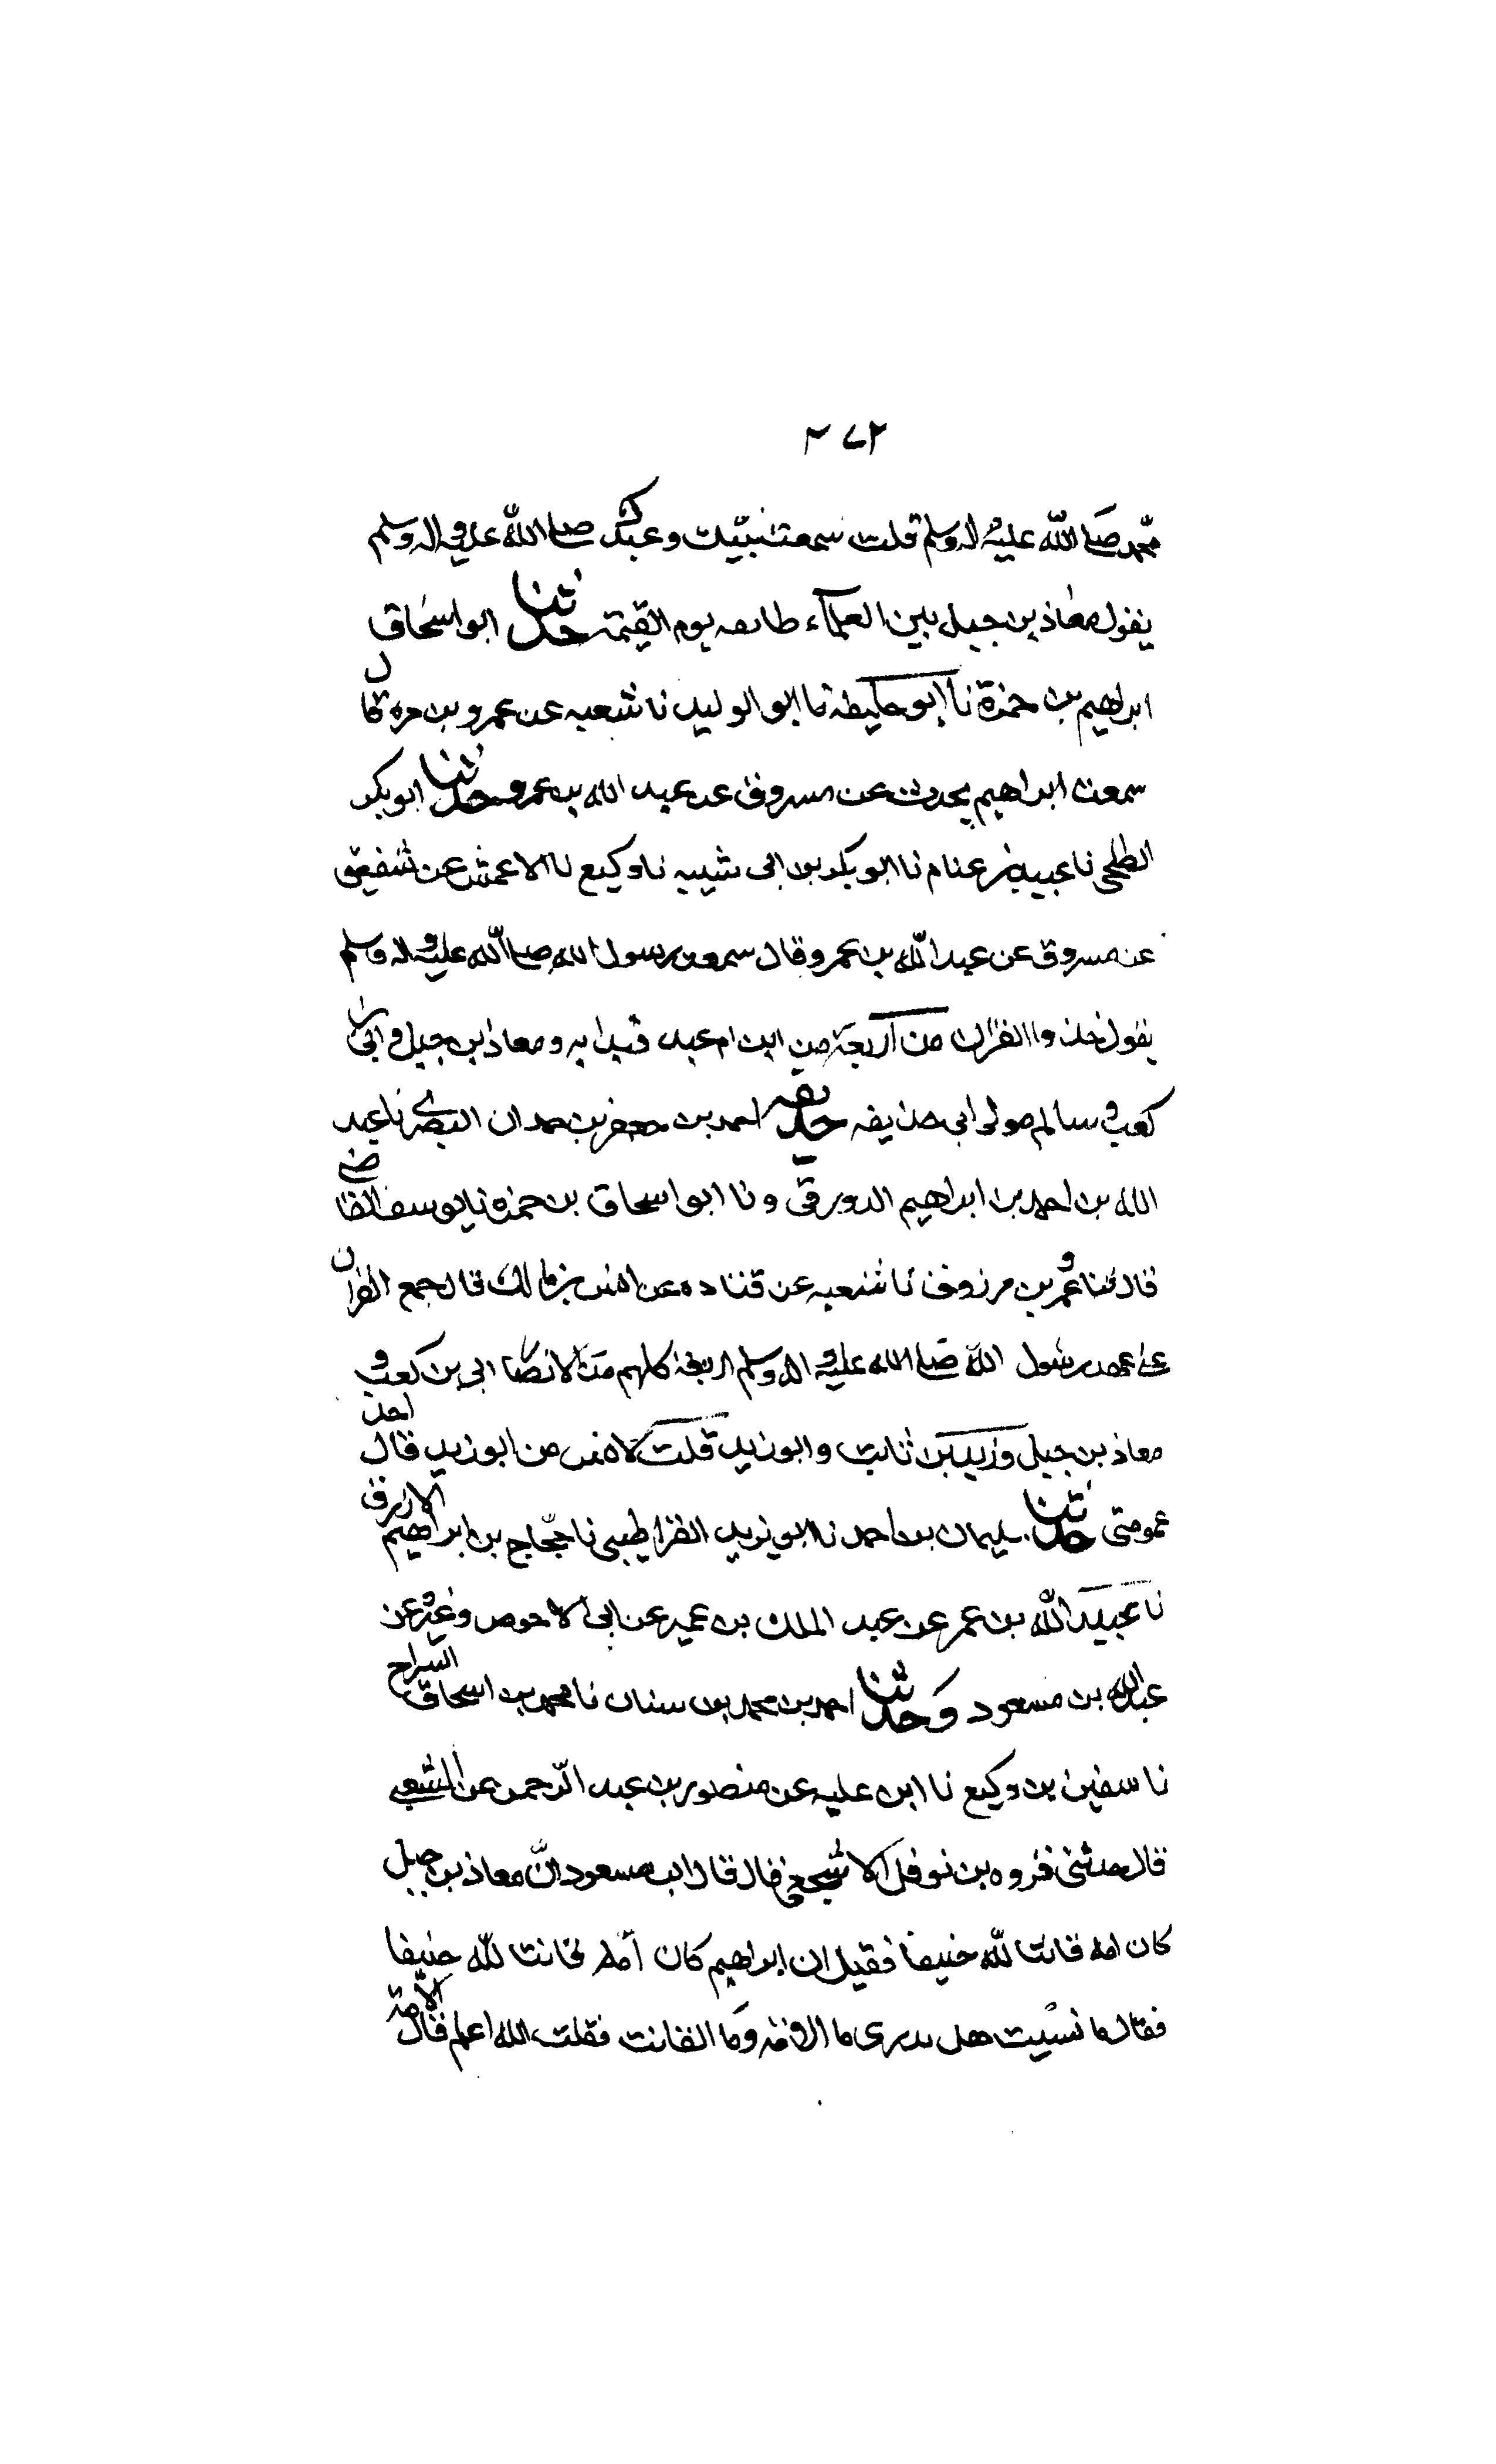 ٢٧٢
محمد صلى الله عليه واله وسلم قلت سمعت نبيك وعبدك صلى الله عليه واله وسلم
يقول معاذ بن جبل بين العلمآء يوم القيمة حدثنا ابو اسحاق
ابراهيم بن حمزة نا ابو خليفة نا ابو الوليد نا شعبه عن عمرو بن مره قال
سمعت ابراهيم يحدث عن مسروق عن عبد الله بن عمرو حدثنا ابو بكر
الطلحى نا عبيد بن غنام نا ابو بكر بن ابى شيبه نا وكيع نا الاعمش عن شقيق
عن مسروق عن عبد الله بن عمرو قال سمعت رسول الله صلى الله عليه واله وسلم
يقول خذوا القران من اربعة من ابن ام عبد فبدا به ومعاذ بن جبل وابى بن
كعب وسالم مولى ابى حذيفه احمد بن جعفر بن حمدان البصرى نا عبد
الله بن احمد بن ابراهيم الدورقى ونا ابو اسحاق بن حمزه نا يوسف القاضى
قال ثنا عمرو بن مرزوق نا شعبه عن قتاده عن انس بن مالك قال جمع القران
على عهد رسول الله صلى الله عليه واله وسلم اربعة كلهم من الانصار ابى بن كعب و
معاذ بن جبل وزيد بن ثابت وابو زيد قلت لانس من ابو زيد قال احد
عمومتى حدثنا سليمان بن احمد نا ابو يزيد القراطيسى نا حجاج بن ابراهيم الازرق
نا عبيد الله بن عمر عن عبد الملك بن عمير عن ابى الاحوص وغيره عن
عبد الله بن مسعود وحدثنا احمد بن محمد بن سنان نا محمد بن اسحاق السراج
نا سفين بن وكيع نا ابن عليه عن منصور بن عبد الرحمن عن الشعبى
قال حدثنى فروه بن نوفل الاشجعى قال قال ابن مسعود ان معاذ بن جبل
كان امه قانتا لله حنيفا فقيل ان ابراهيم كان امه قانتا لله حنيفا
فقال ما نسيت هل تدرى ما الامة وما القانت فقلت الله اعلم قال الامة